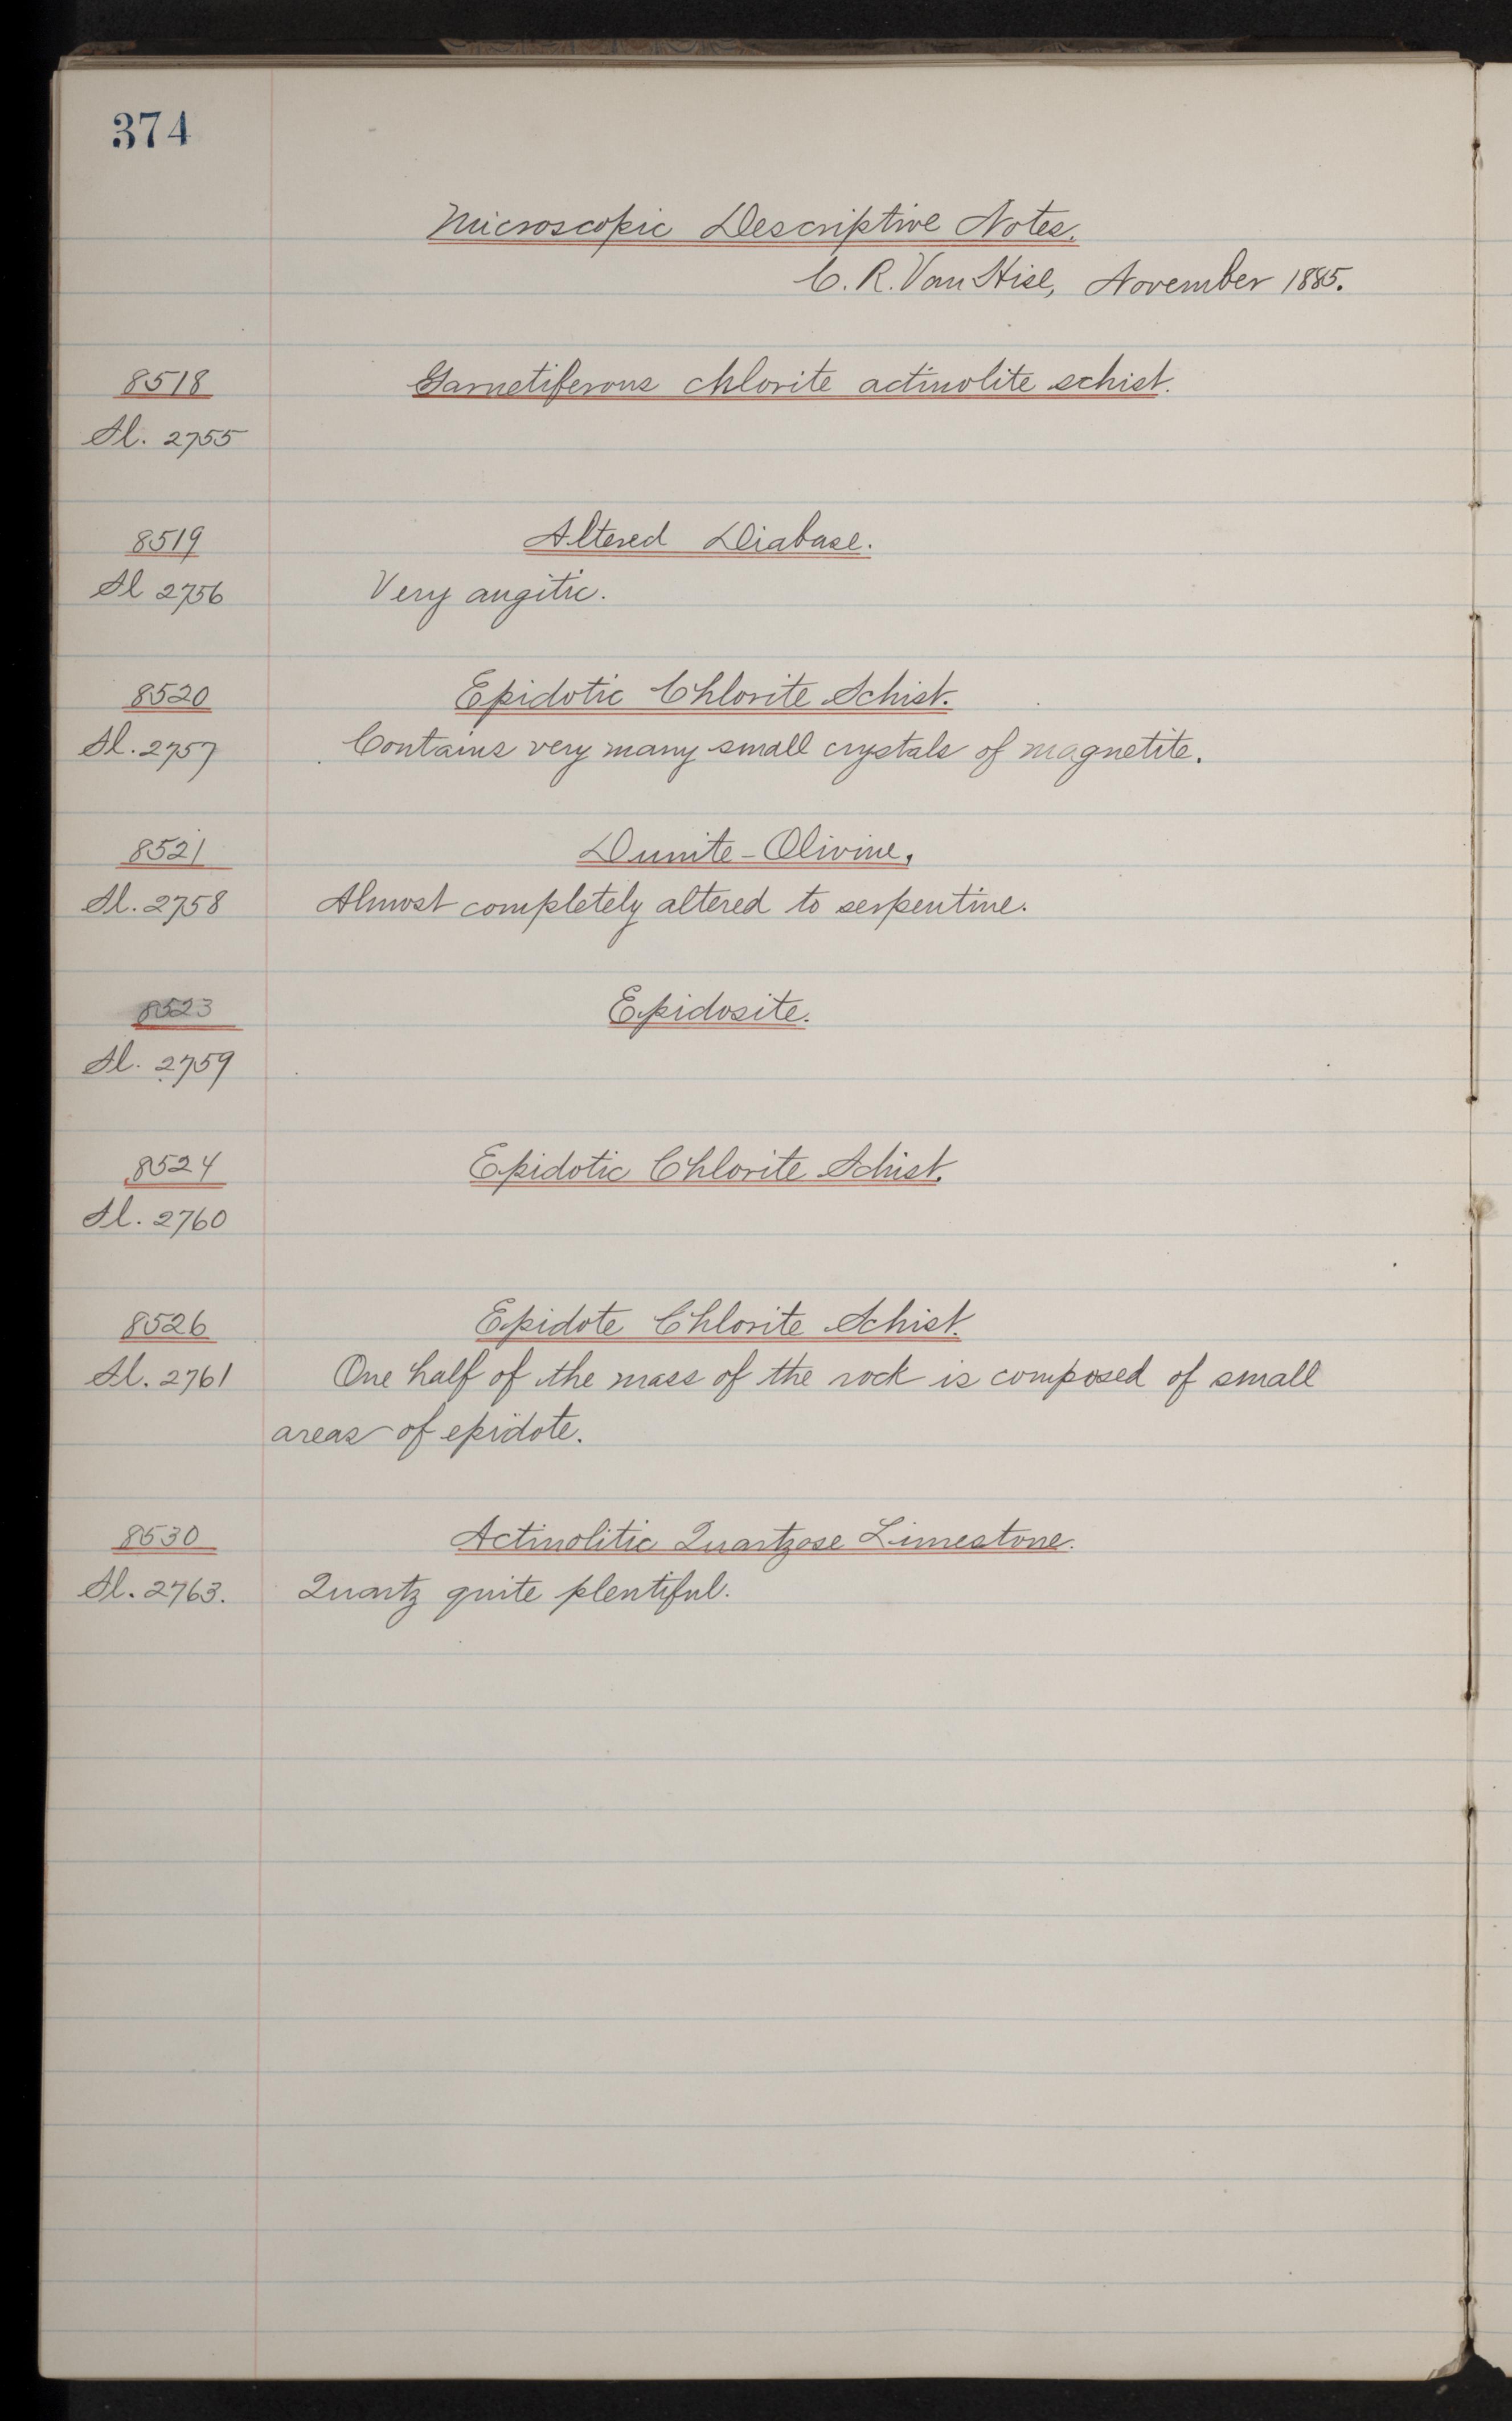 374
Microscopic Descriptive Notes.
C. R. Van Hise, November 1885.
8518 Garnetiferous chlorite actinolite schist.
Sl. 2755
8519 Altered Diabase.
Sl 2756 Very augitic.
8520 Epidotic Chlorite Schist.
Sl. 2757 Contains very many small crystals of magnetite.
8521 Dunite-Olivine.
Sl. 2758 Almost completely altered to serpentine.
8523 Epidosite.
Sl. 2759
8524 Epidotic Chlorite Schist.
Sl. 2760
8526 Epidote Chlorite Schist.
Sl. 2761 One half of the mass of the rock is composed of small
areas of epidote.
8530 Actinolitic Quartzose Limestone.
Sl. 2763. Quartz quite plentiful.